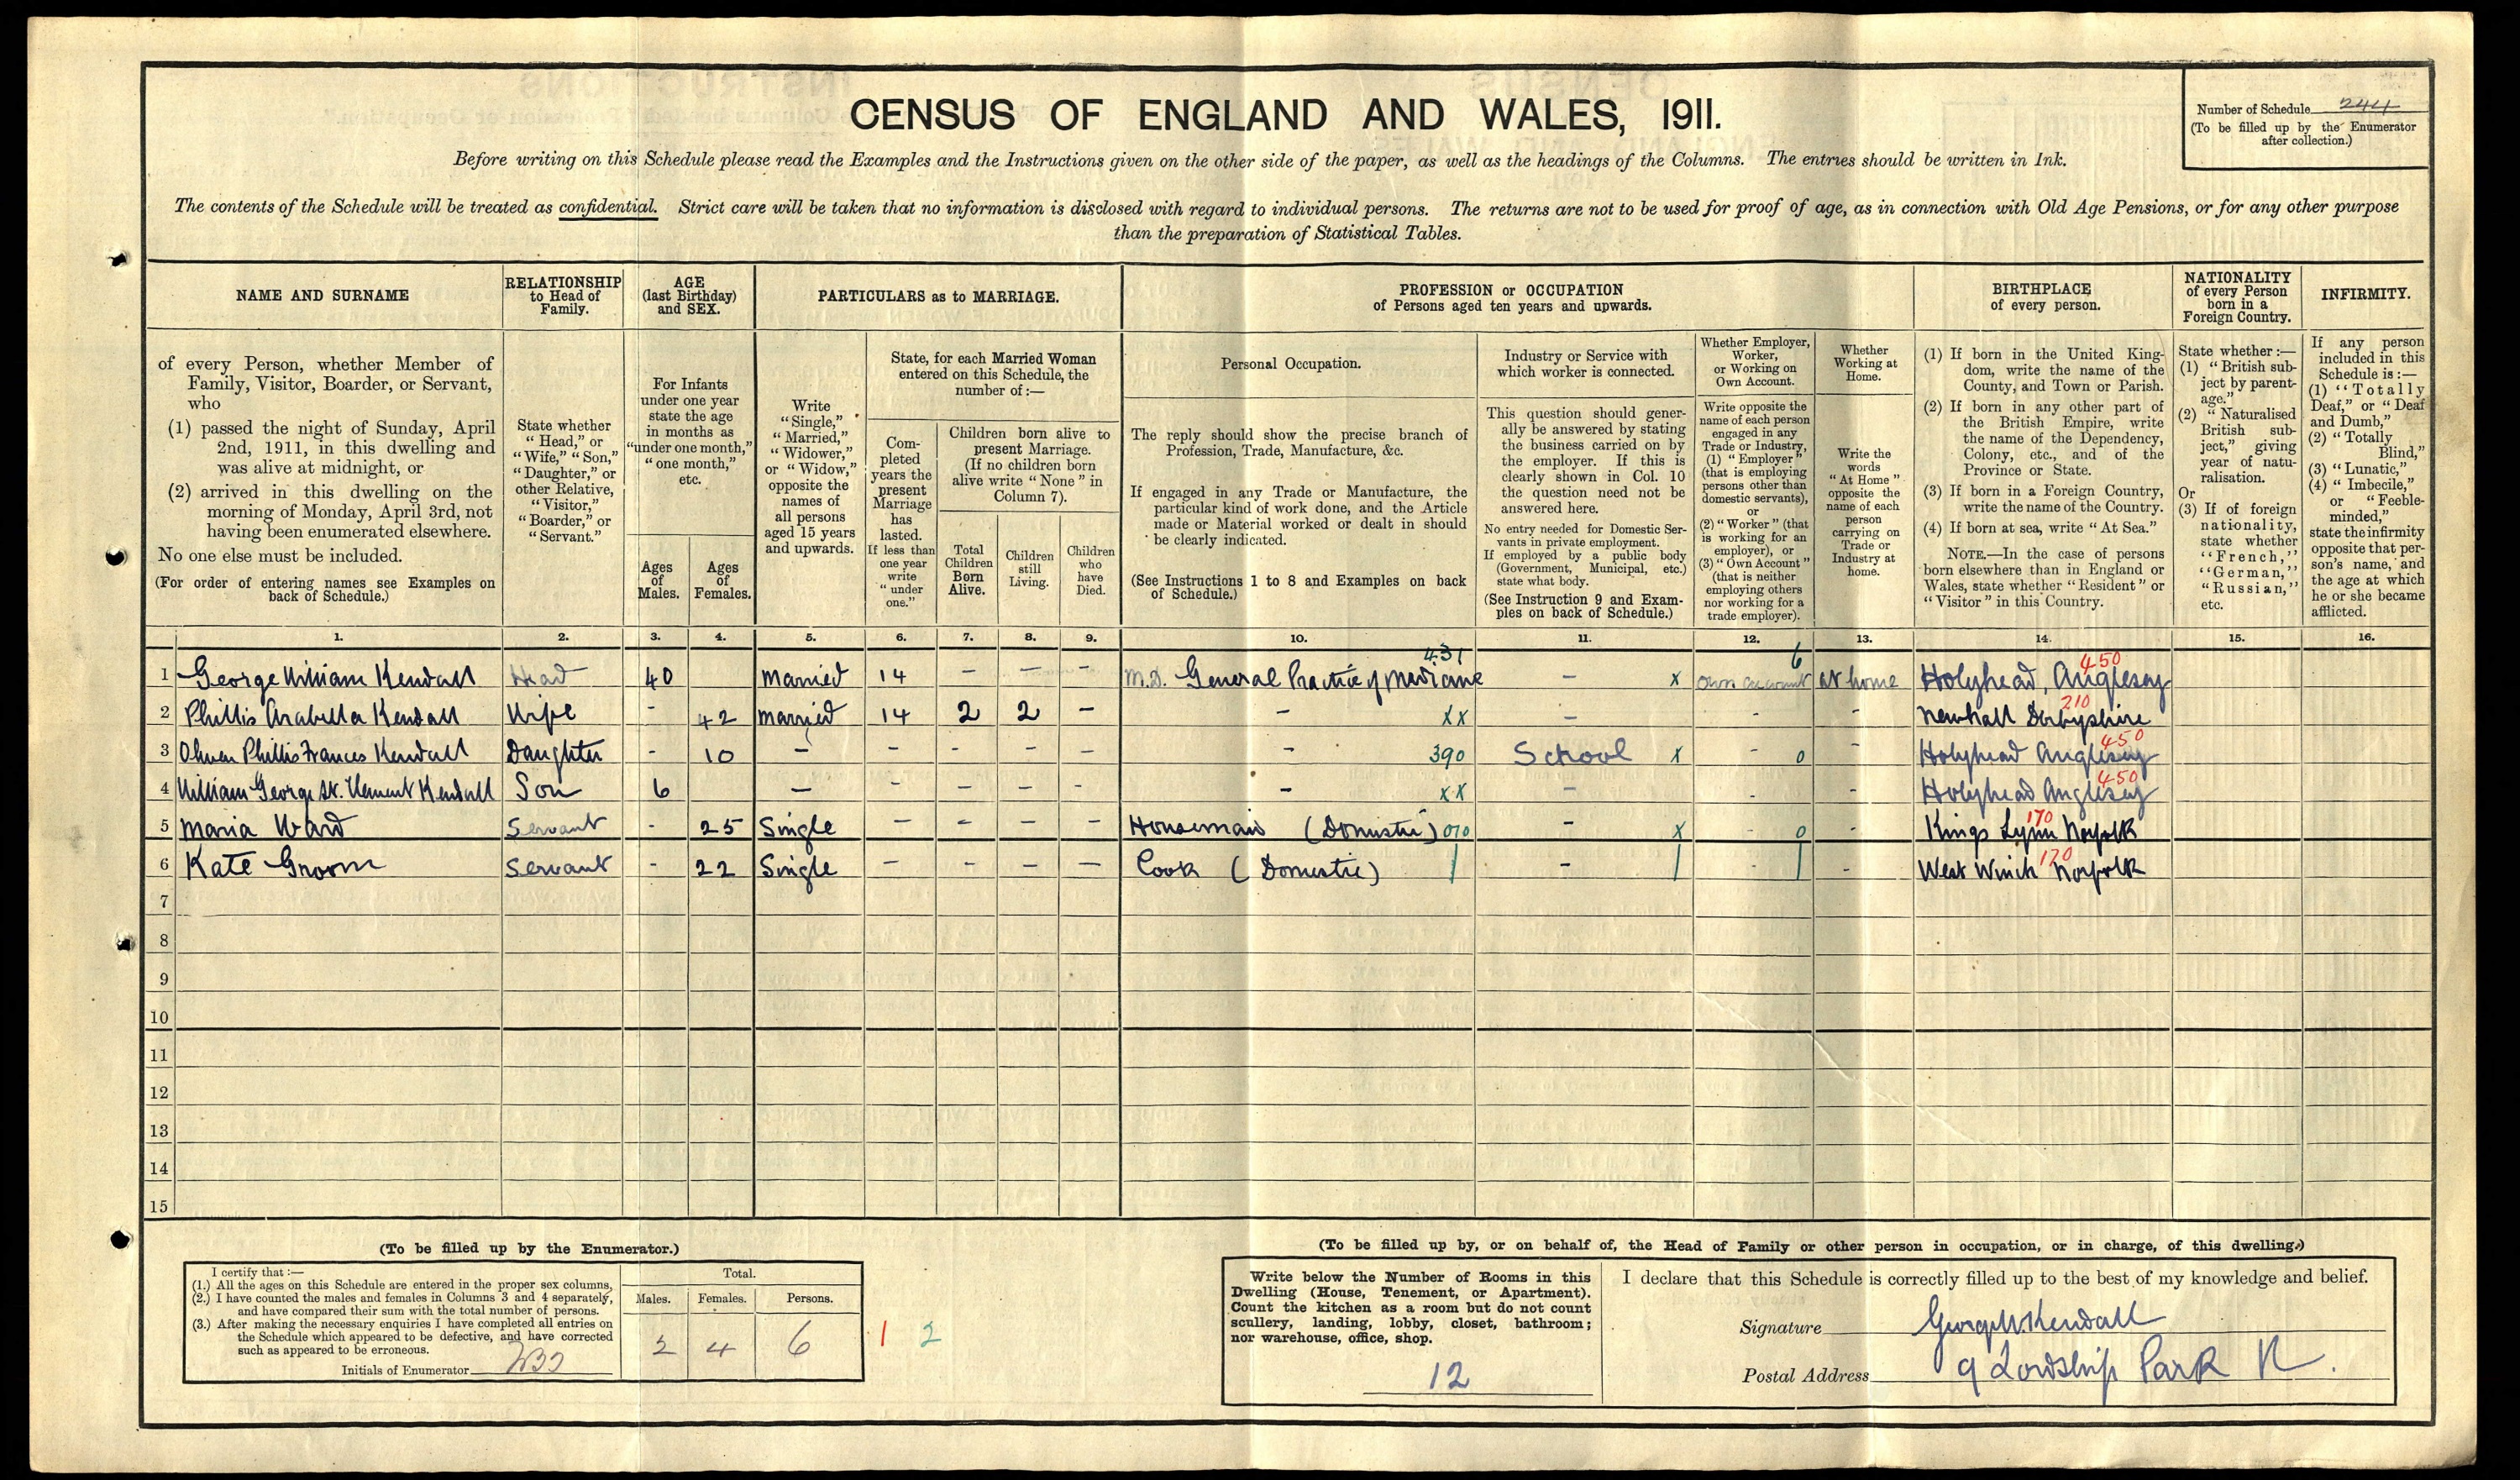 CENSUS OF ENGLAND AND WALES, 1911.
Number of Schedule 244
(To be filled up by the Enumerator
after collection.)
Before writing on this Schedule please read the Examples and the Instructions given on the other side of the paper, as well as the headings of the Columns. The entries should be written in Ink.
The contents of the Schedule will be treated as confidential. Strict care will be taken that no information is disclosed with regard to individual persons. The returns are not to be used for proof of age, as in connection with Old Age Pensions, or for any other purpose
than the preparation of Statistical Tables.
NAME AND SURNAME
of every Person, whether Member of
Family, Visitor, Boarder, or Servant,
who
(1) passed the night of Sunday, April
2nd, 1911, in this dwelling and
was alive at midnight, or
(2) arrived in this dwelling on the
morning of Monday, April 3rd, not
having been enumerated elsewhere.
No one else must be included.
(For order of entering names see Examples on
back of Schedule.)
RELATIONSHIP
to Head of
Family.
State whether
"Head," or
"Wife," "Son,"
"Daughter," or
other Relative,
"Visitor,"
"Boarder," or
"Servant."
AGE
(last Birthday)
and SEX.
For Infants
under one year
state the age
in months as
"under one month,"
"one month,"
etc.
Ages
of
Males.
Ages
of
Females.
PARTICULARS as to MARRIAGE.
Write
"Single,"
"Married,"
"Widower,"
or "Widow,"
opposite the
names of
all persons
aged 15 years
and upwards.
State, for each Married Woman
entered on this Schedule, the
number of:—
Com-
pleted
years the
present
Marriage
has
lasted.
If less than
one year
write
"under
one."
Children born alive to
present Marriage.
(If no children born
alive write "None" in
Column 7).
Total
Children
Born
Alive.
Children
still
Living.
Children
who
have
Died.
PROFESSION or OCCUPATION
of Persons aged ten years and upwards.
Personal Occupation.
The reply should show the precise branch of
Profession, Trade, Manufacture, &c.
If engaged in any Trade or Manufacture, the
particular kind of work done, and the Article
made or Material worked or dealt in should
be clearly indicated.
(See Instructions 1 to 8 and Examples on back
of Schedule.)
Industry or Service with
which worker is connected.
This question should gener-
ally be answered by stating
the business carried on by
the employer. If this is
clearly shown in Col. 10
the question need not be
answered here.
No entry needed for Domestic Ser-
vants in private employment.
If employed by a public body
(Government, Municipal, etc.)
state what body.
(See Instruction 9 and Exam-
ples on back of Schedule.)
Whether Employer,
Worker,
or Working on
Own Account.
Write opposite the
name of each person
engaged in any
Trade or Industry,
(1) "Employer"
(that is employing
persons other than
domestic servants),
or
(2) "Worker" (that
is working for an
employer), or
(3) "Own Account"
(that is neither
employing others
nor working for a
trade employer).
Whether
Working at
Home.
Write the
words
"At Home"
opposite the
name of each
person
carrying on
Trade or
Industry at
home.
BIRTHPLACE
of every person.
(1) If born in the United King-
dom, write the name of the
County, and Town or Parish.
(2) If born in any other part of
the British Empire, write
the name of the Dependency,
Colony, etc., and of the
Province or State.
(3) If born in a Foreign Country,
write the name of the Country.
(4) If born at sea, write "At Sea."
NOTE.—In the case of persons
born elsewhere than in England or
Wales, state whether "Resident" or
"Visitor" in this Country.
NATIONALITY
of every Person
born in a
Foreign Country.
State whether:—
(1) "British sub-
ject by parent-
age."
(2) "Naturalised
British sub-
ject," giving
year of natu-
ralisation.
Or
(3) If of foreign
nationality,
state whether
"French,"
"German,"
"Russian,"
etc.
INFIRMITY.
If any person
included in this
Schedule is:—
(1) "Totally
Deaf," or "Deaf
and Dumb,"
(2) "Totally
Blind,"
(3) "Lunatic,"
(4) "Imbecile,"
or "Feeble-
minded,"
state the infirmity
opposite that per-
son's name, and
the age at which
he or she became
afflicted.
1. 2. 3. 4. 5. 6. 7. 8. 9. 10. 11. 12. 13. 14. 15. 16.
1 George William Kendall Head 40 Married 14 — — — M.D. General Practice of Medicine 431 — x own account 6 at home Holyhead, Anglesey 450
2 Phillis Arabella Kendall Wife - 42 Married 14 2 2 - - xx - - - Newhall Derbyshire 210
3 Olwen Phillis Frances Kendall Daughter - 10 - - - - - - 390 School x - 0 - Holyhead Anglesey 450
4 William George St. Clement Kendall Son 6 - - - - - - xx - - - Holyhead Anglesey 450
5 Maria Ward Servant - 25 Single - - - - Housemaid (Domestic) 010 - x - 0 - Kings Lynn Norfolk 170
6 Kate Groom Servant - 22 Single - - - - Cook (Domestic) | - | - | - West Winch Norfolk 170
7
8
9
10
11
12
13
14
15
(To be filled up by the Enumerator.)
I certify that:—
(1.) All the ages on this Schedule are entered in the proper sex columns.
(2.) I have counted the males and females in Columns 3 and 4 separately,
and have compared their sum with the total number of persons.
(3.) After making the necessary enquiries I have completed all entries on
the Schedule which appeared to be defective, and have corrected
such as appeared to be erroneous.
Initials of Enumerator
Total.
Males. Females. Persons.
2 4 6 1 2
(To be filled up by, or on behalf of, the Head of Family or other person in occupation, or in charge, of this dwelling.)
Write below the Number of Rooms in this
Dwelling (House, Tenement, or Apartment).
Count the kitchen as a room but do not count
scullery, landing, lobby, closet, bathroom;
nor warehouse, office, shop.
12
I declare that this Schedule is correctly filled up to the best of my knowledge and belief.
Signature George W. Kendall
Postal Address 9 Lordship Park N.